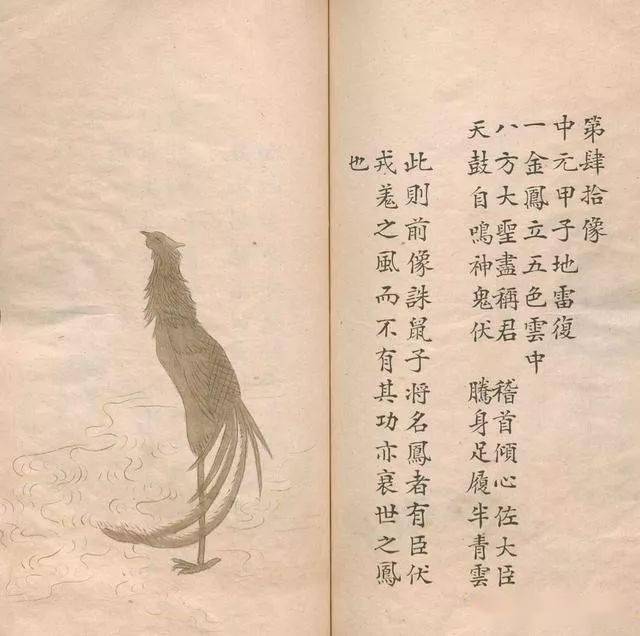 第肆拾像
中元甲子地雷復
一金鳳立五色雲中
八方大聖盡稱君 稽首傾心佐大臣
天鼓自鳴神鬼伏 騰身足履半青雲
此則前像誅鼠子將名鳳者有臣伏
戎羗之風而不有其功亦衰世之鳳
也